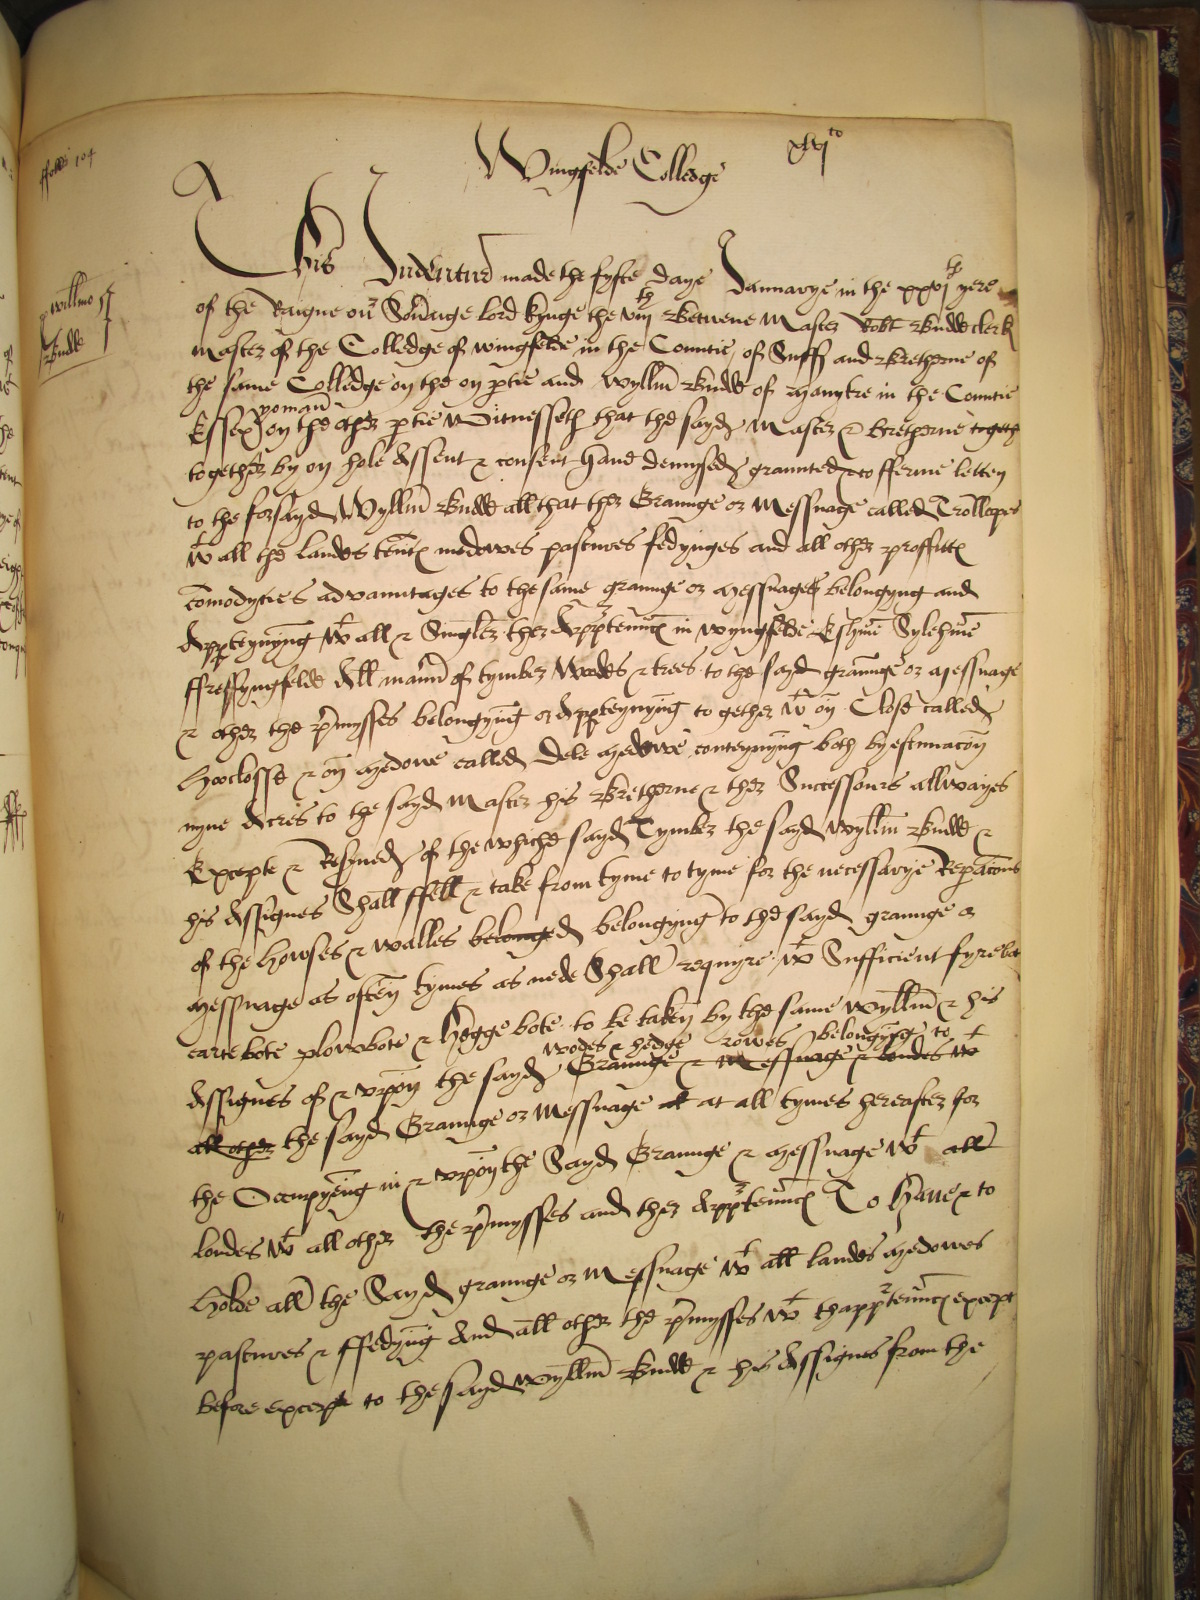 ffolio 104
Wingfelde Colledge
xvj to
willmo
Budde
This Indenture made the fyfte daye Jannuarye in the xxvj th yere
of the Raigne our Soveraige lord kynge the viij th Betwene Master Robt Budde clerk
Master of the Colledge of wingfelde in the Countie of Suff and Bretherne of
the same Colledge on the on ptie and Wyllm Budde of Manytre in the Countie
Essex yoman on the other ptie Witnesseth that the sayd Master & bretherne togeth
together by on hole assent & consent hand demysed graunted & to fferme letten
to the forsayd Wyllm Budde all that ther Graunge or Messuage called Trollopes
wt all the landes tentes medowes pastures fedynges and all other proffittes
comodyties advauntages to the same graunge or messuages belongyng and
Appteynyng wt all & Singler ther Apptennces in wyngfelde Eshme Sylehme
ffressyngfelde All maner of tymber Wodes & trees to the sayd graunge or messuage
& other the pmysses belongyng or Appteynyng to gether wt on Close called
Hoclosse & on medowe called Dele medowe conteynyng both by estimacyn
nyne Acres to the sayd Master his Bretherne & ther Successours allwayes
Excepte & Resyved of the whiche sayd Tymber the sayd wyllm Budde &
his Assignes Shall ffell & take from tyme to tyme for the necessarye Repacons
of the howses & walles belonged belongyng to the sayd graunge or
messuage as often tymes as nede Shall requyre wt Sufficient fyrebot
carte bote plowbote & hegge bote to be taken by the same wyllm & his
wodes & hedge rowes belongyng to
Assignes of & uppon the sayd Graunge & Messuage & landes wt
all other the sayd Graunge or Messuage at at all tymes hereafter for
the Occupyeng in & uppon the Sayd Graunge & messuage wt all
londes wt all other the pmysses and ther Apptennces To Have & to
holde all the Sayd graunge or Messuage wt all landes medowes
pastures & ffedyng And all other the pmysses wt thapptennces except
before except to the sayd wyllm Budde & his Assignes from the